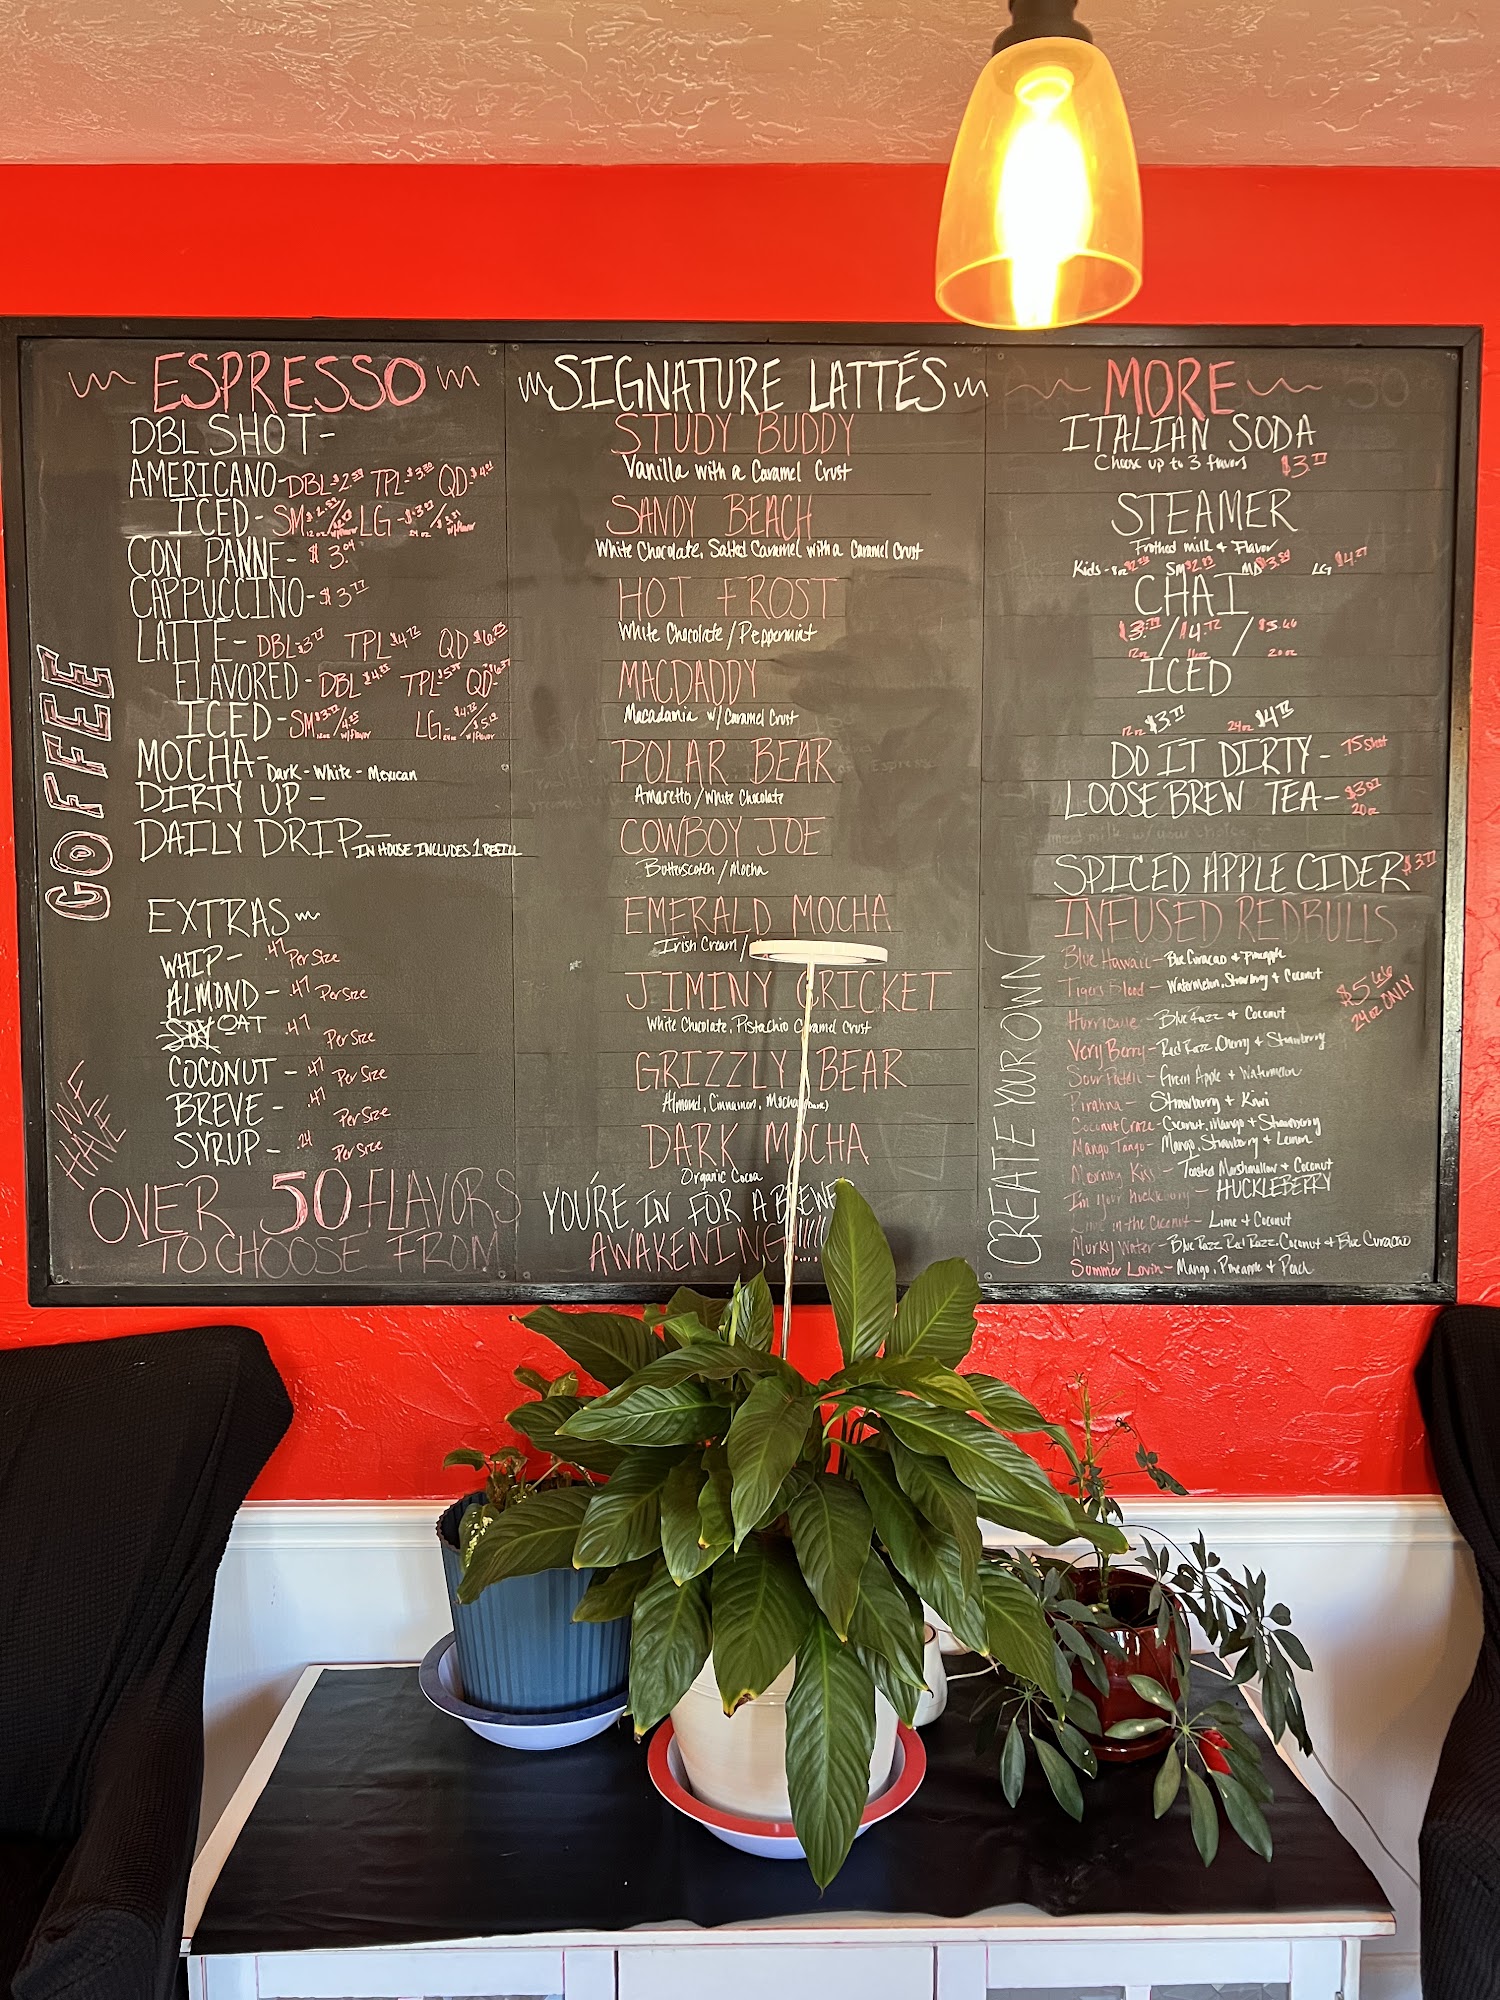 COFFEE
ESPRESSO
DBL SHOT-
AMERICANO- DBL- TPL QD-
ICED- SM LG
CON PANNE- $3.04
CAPPUCCINO- $3.77
LATTÉ- DBL- $3.77 TPL $4.72 QD
FLAVORED- DBL TPL QD-
ICED- SM LG
MOCHA- Dark - White - Mexican
DIRTY UP-
DAILY DRIP- IN HOUSE INCLUDES 1 REFILL
EXTRAS
WHIP- .47 Per Size
ALMOND- .47 Per Size
OAT .47 Per Size
COCONUT- .47 Per Size
BREVE- .47 Per Size
SYRUP- .24 Per Size
WE HAVE
OVER 50 FLAVORS
TO CHOOSE FROM
SIGNATURE LATTÉS
STUDY BUDDY
Vanilla with a Caramel Crust
SANDY BEACH
White Chocolate, Salted Caramel with a Caramel Crust
HOT FROST
White Chocolate / Peppermint
MACDADDY
Macadamia w/ Caramel Crust
POLAR BEAR
Amaretto / White Chocolate
COWBOY JOE
Butterscotch / Mocha
EMERALD MOCHA
Irish Cream /
JIMINY CRICKET
White Chocolate, Pistachio Caramel Crust
GRIZZLY BEAR
Almond, Cinnamon, Mocha (Dark)
DARK MOCHA
Organic Cocoa
YOU'RE IN FOR A BREWED
AWAKENING!!!!!!
MORE
ITALIAN SODA
Choose up to 3 flavors $3.77
STEAMER
Frothed milk + Flavor
Kids - 8oz SM MD LG $4.27
CHAI
$3.77 / $4.72 / $5.66
12oz 16oz 20oz
ICED
12oz $3.77 24oz $4.77
DO IT DIRTY- 75 Shot
LOOSE BREW TEA- 20oz
SPICED APPLE CIDER $3.77
INFUSED REDBULLS
CREATE YOUR OWN
Blue Hawaii - Blue Curacao + Pineapple
Tigers Blood - Watermelon, Strawberry + Coconut
$5.66
24oz ONLY
Hurricane - Blue Razz + Coconut
Very Berry - Red Razz, Cherry & Strawberry
Sour Patch - Green Apple + Watermelon
Pirahna - Strawberry + Kiwi
Coconut Craze - Coconut, Mango + Strawberry
Mango Tango - Mango, Strawberry + Lemon
Morning Kiss - Toasted Marshmallow + Coconut
I'm Your Huckleberry - HUCKLEBERRY
Lime in the Coconut - Lime + Coconut
Murky Water - Blue Razz, Red Razz, Coconut + Blue Curacao
Summer Lovin - Mango, Pineapple + Peach